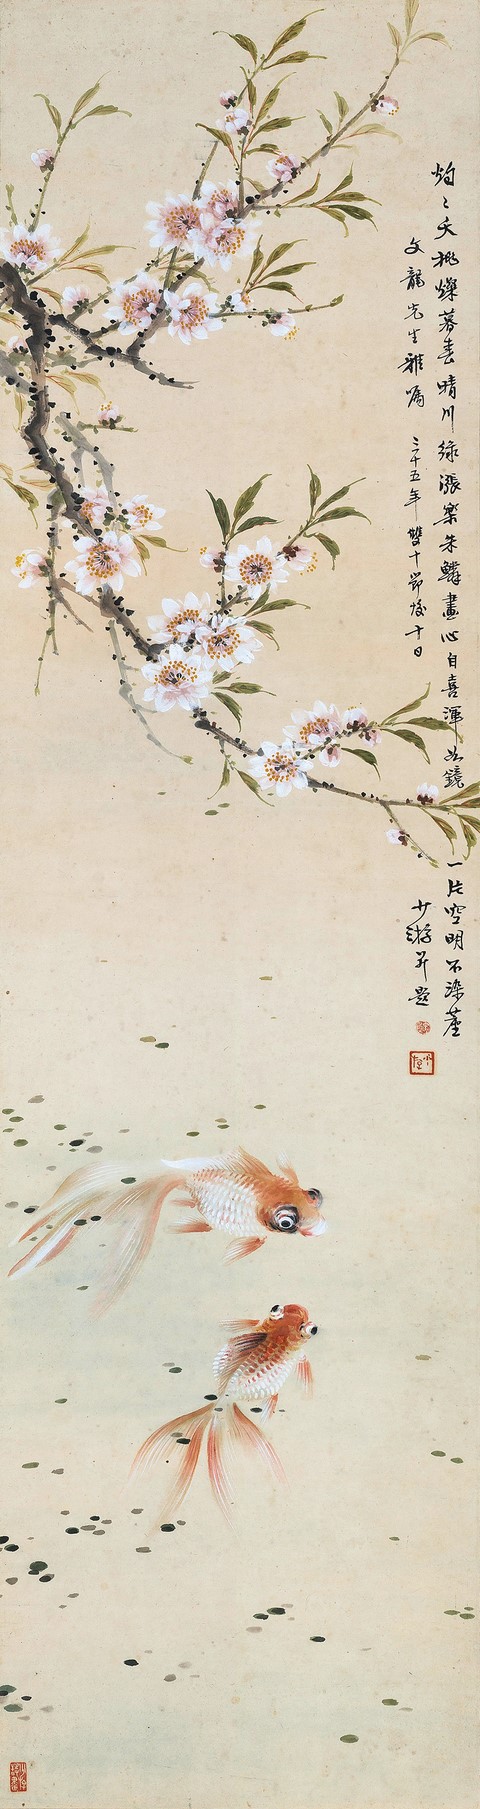 灼々夭桃燦暮春晴川綠漲樂朱鱗畫心自喜渾如鏡一片空明不染塵
文龍先生雅囑 三十五年雙十節後十日
少游并題